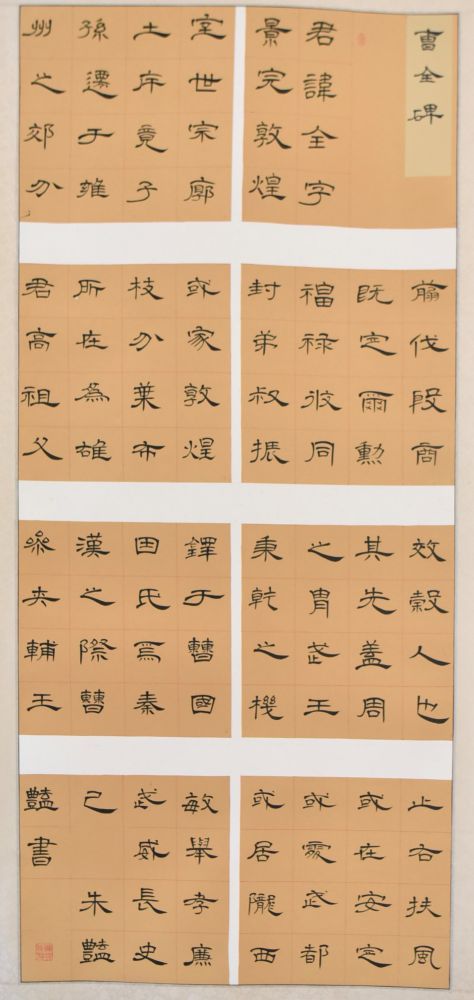 曹全碑
君諱全字
景完敦煌
效穀人也
其先蓋周
之胄武王
秉乾之機
翦伐殷商
既定爾勳
福祿攸同
封弟叔振
鐸于曹國
因氏焉秦
漢之際曹
參夾輔王
室世宗廓
土斥竟子
孫遷于雍
州之郊分
止右扶風
或在安定
或處武都
或居隴西
或家敦煌
枝分葉布
所在為雄
君高祖父
敏舉孝廉
武威長史
巳 朱豔
豔書